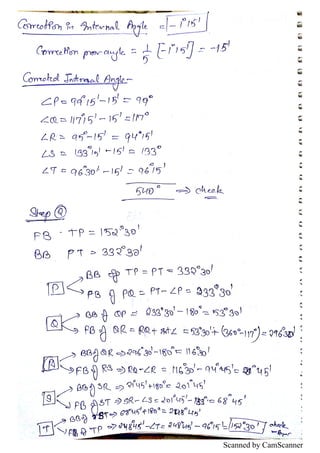 Correction in Internal Angle = [-1°15']
Correction per angle = 1/5 [-1°15'] = -15'
Corrected Internal Angle:-
∠P = 99°15'-15' = 99°
∠Q = 117°15'-15' = 117°
∠R = 95°-15' = 94°45'
∠S = 133°15'-15' = 133°
∠T = 96°30'-15' = 96°15'
540° ⇒ check
Step ②
FB - TP = 152°30'
BB PT = 332°30'
P → BB of TP = PT = 332°30'
FB of PQ = PT-∠P = 233°30'
Q → BB of QP = 233°30'-180° = 53°30'
FB of QR = = 53°30'+(360°-117°) = 296°30'
R → BB of QR ⇒ 296°30'-180° = 116°30'
FB of RS ⇒ RQ-∠R = 116°30'-94°45' = 21°45'
S → BB of SR ⇒ 21°45'+180° = 201°45'
FB of ST ⇒ SR-∠S = 201°45'-133° = 68°45'
T → BB of ST ⇒ 68°45'+180° = 248°45'
FB of TP ⇒ 248°45'-∠T = 248°45'-96°15' = [152°30'] check
Scanned by CamScanner